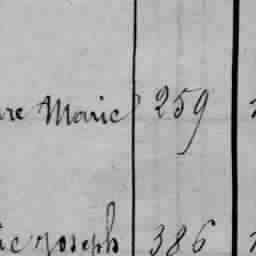 re Marie 259
ie Joseph 386